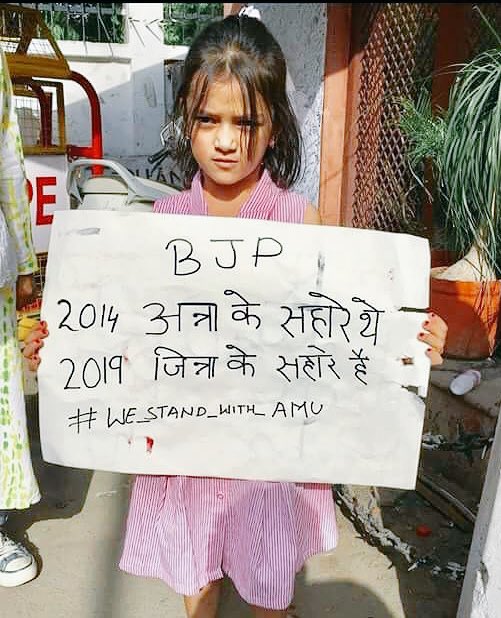 BJP
2014 अन्ना के सहारे थे
2019 जिन्ना के सहारे है
# WE_STAND_WITH_AMU